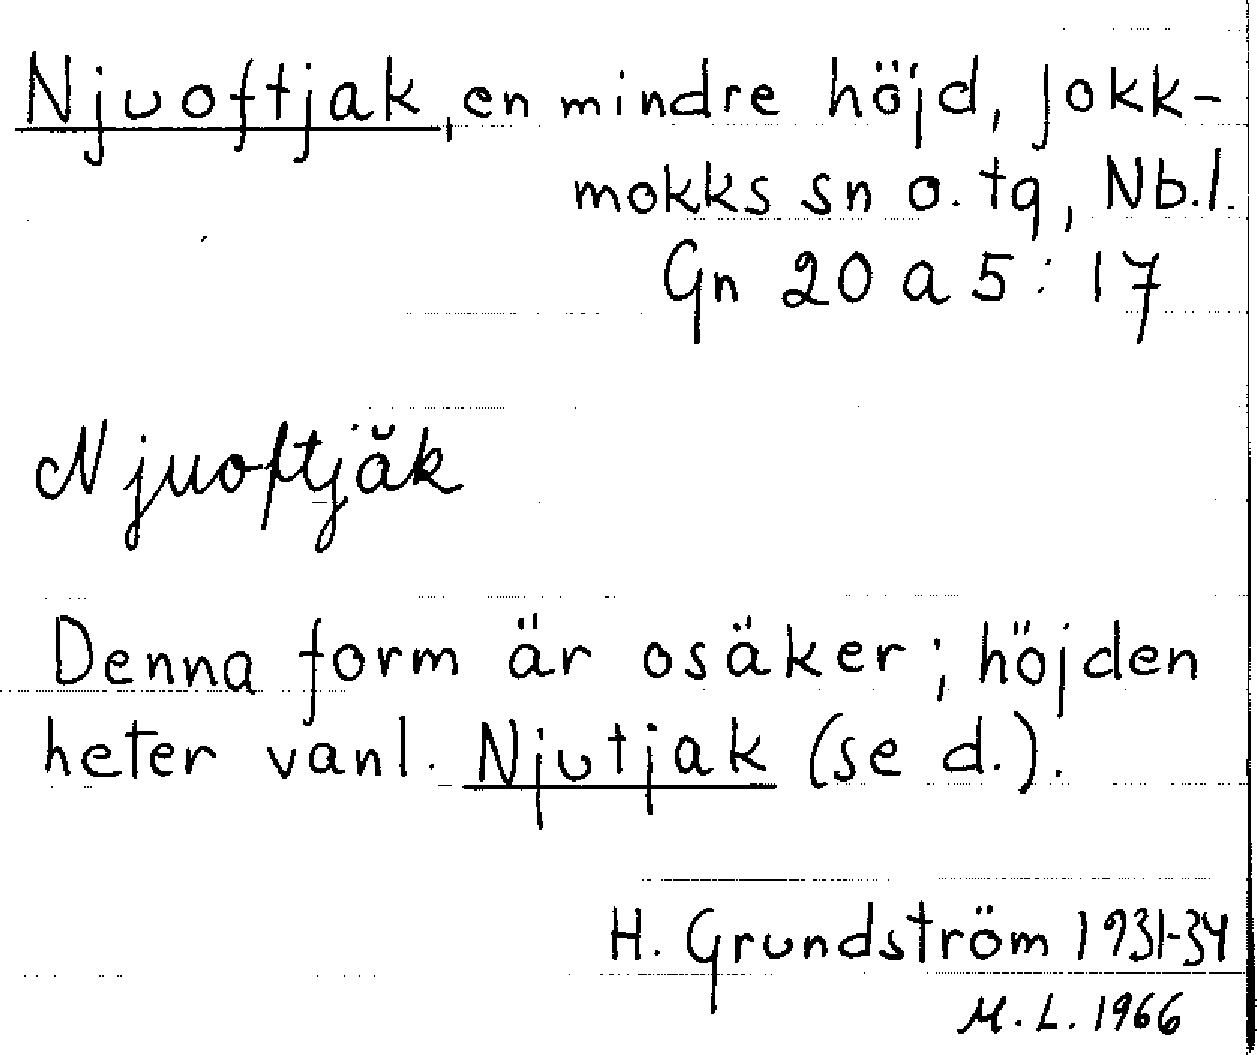 Njuoftjak, en mindre höjd, Jokk-
mokks sn o. tg, Nb.l.
Gn 20 a 5 : 17
Njuoftjăk
Denna form är osäker; höjden
heter vanl. Njutjak (se d.).
H. Grundström 1931-34
M.L. 1966